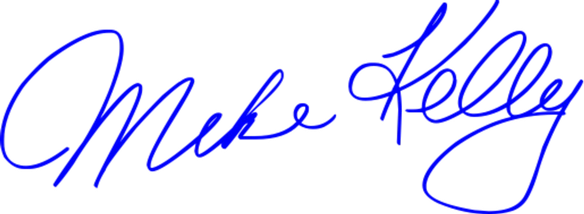 Mike Kelly